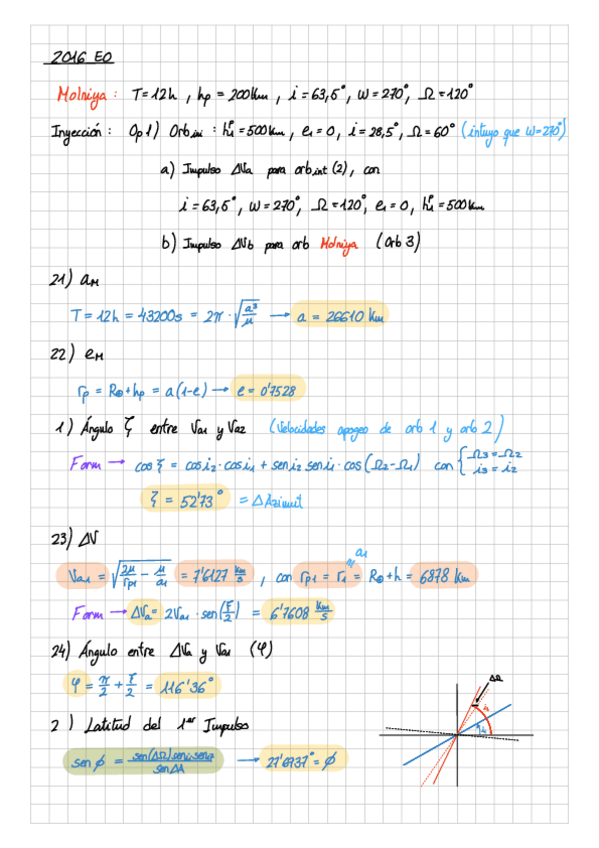 2016 EO
Molniya : T=12h , hp = 200km , i = 63,5°, ω = 270°, Ω = 120°
Inyección : Op 1) Orb ini : h₁⁰ = 500km , e₁ = 0 , i = 28,5°, Ω = 60° (intuyo que ω=270°)
a) Impulso ΔVa para orb int (2), con
i = 63,5°, ω = 270°, Ω = 120°, e₁ = 0, h₁⁰ = 500 km
b) Impulso ΔVb para orb Molniya (orb 3)
21) aM
T = 12h = 43200s = 2π · √(a³/μ) → a = 26610 km
22) eM
rp = R⊕ + hp = a(1-e) → e = 0'7528
1) Ángulo ξ entre Va1 y Va2 (Velocidades apogeo de orb 1 y orb 2)
Form → cos ξ = cos i₂ · cos i₁ + sen i₂ sen i₁ · cos (Ω₂-Ω₁) con { Ω₃ = Ω₂
i₃ = i₂
ξ = 52'73° = ΔAzimut
23) ΔV
a₁
Va1 = √(2μ/rp1 - μ/a₁) = 7'6127 km/s , con rp1 = r₁ = R⊕ + h = 6878 km
Form → ΔVa = 2Va1 · sen(ξ/2) = 6'7608 km/s
24) Ángulo entre ΔVa y Va1 (φ)
φ = π/2 + ξ/2 = 116'36°
ΔΩ
2) Latitud del 1er Impulso
i₂
i₁
sen ϕ = sen(ΔΩ) sen i₁ sen i₂ / sen ΔA → 27'6737° = ϕ